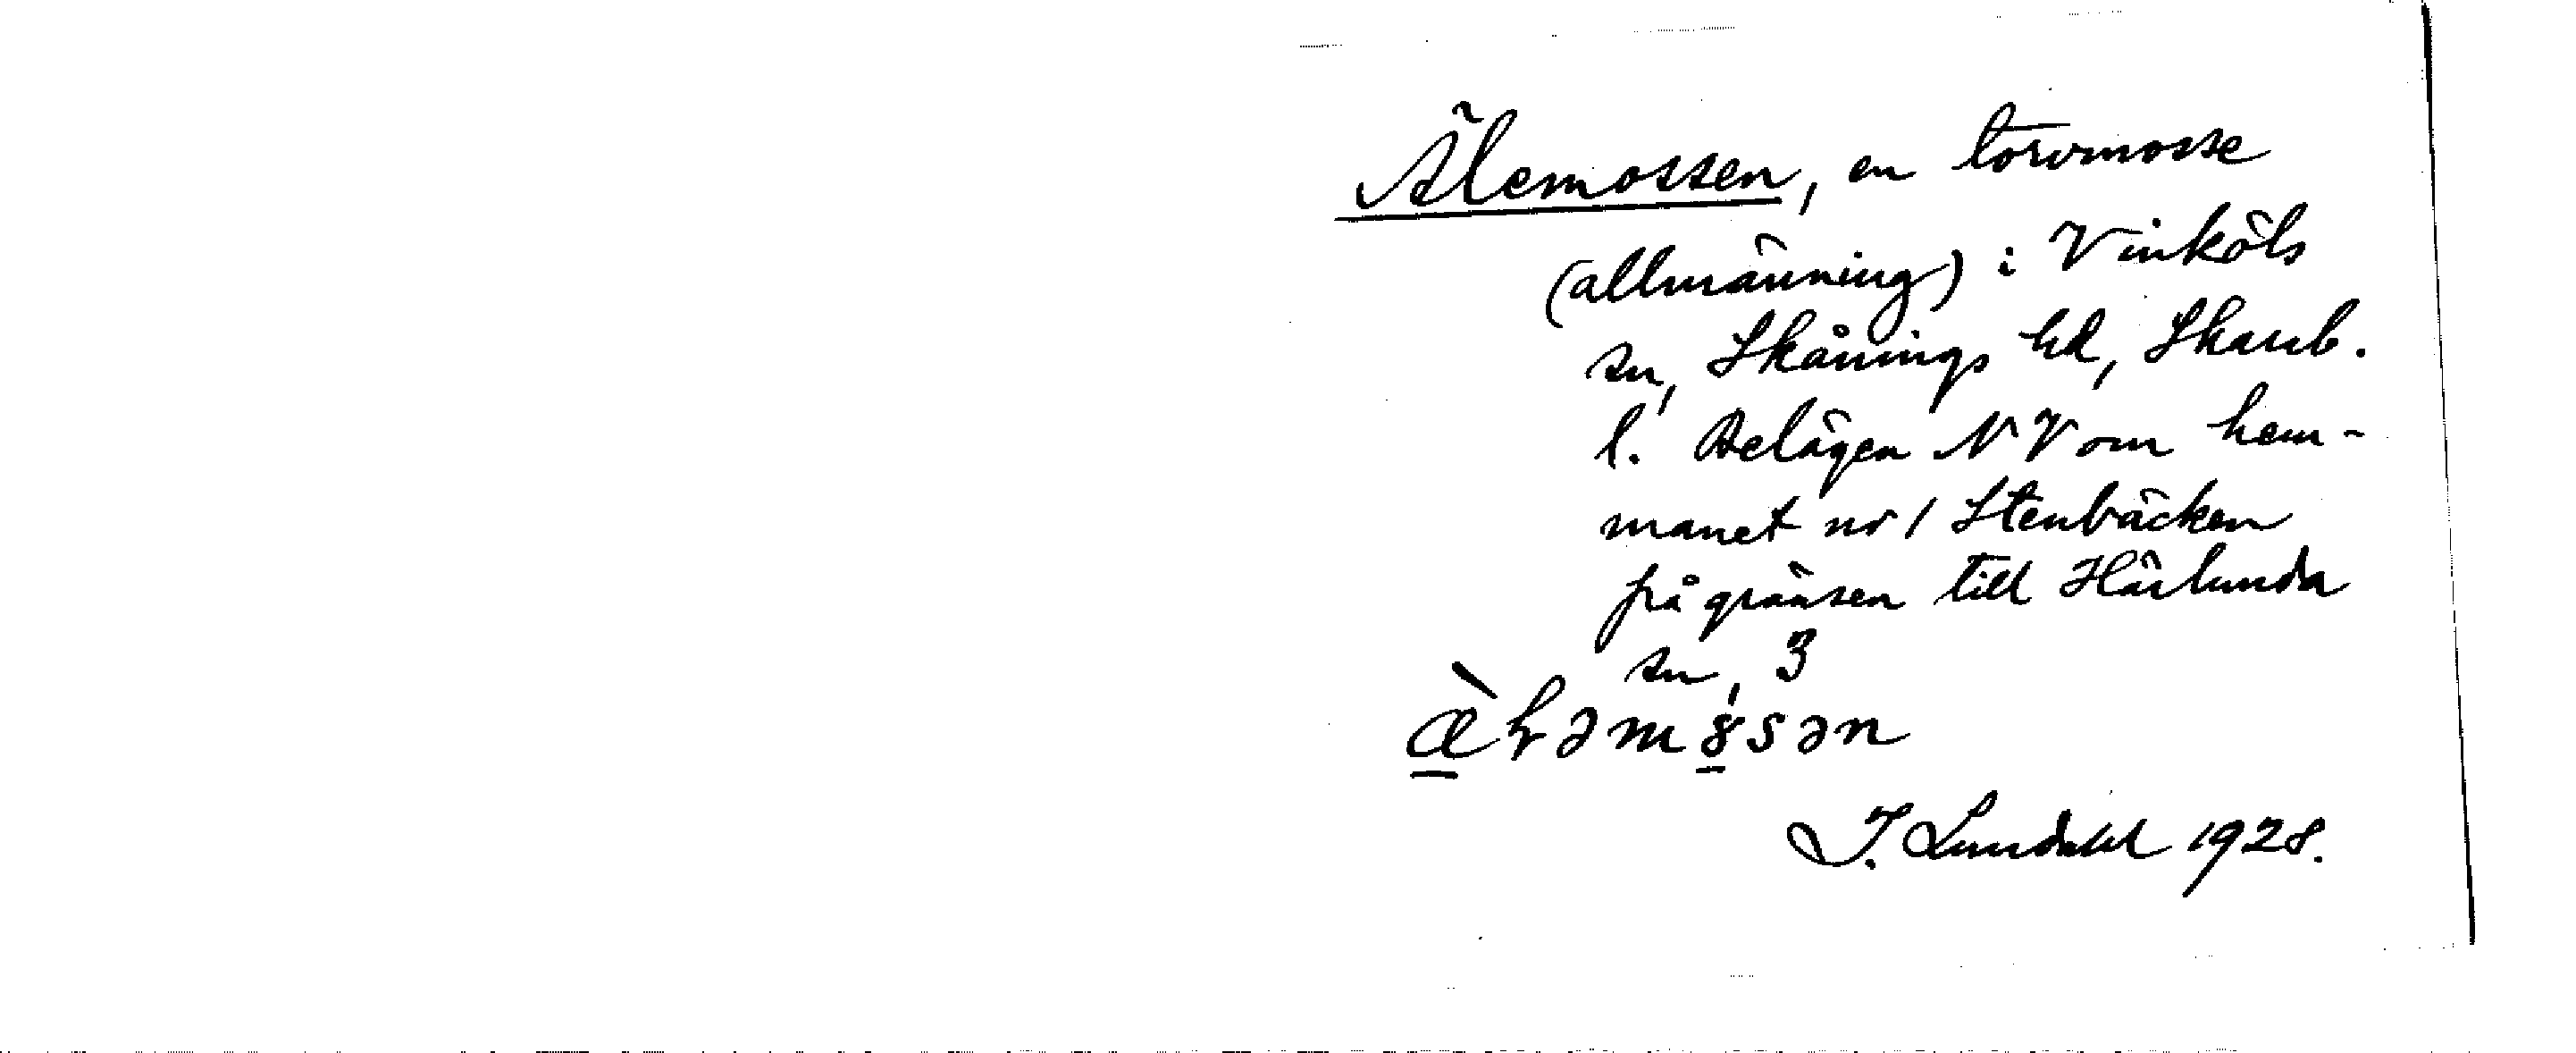 Älemossen, en torvmosse
(allmänning) i Vinköls
sn, Skånings hd, Skarab.
l. Belägen NV om hem-
manet nr 1 Stenbäcken
på gränsen till Härlunda
sn, 3
I. Lundahl 1928.